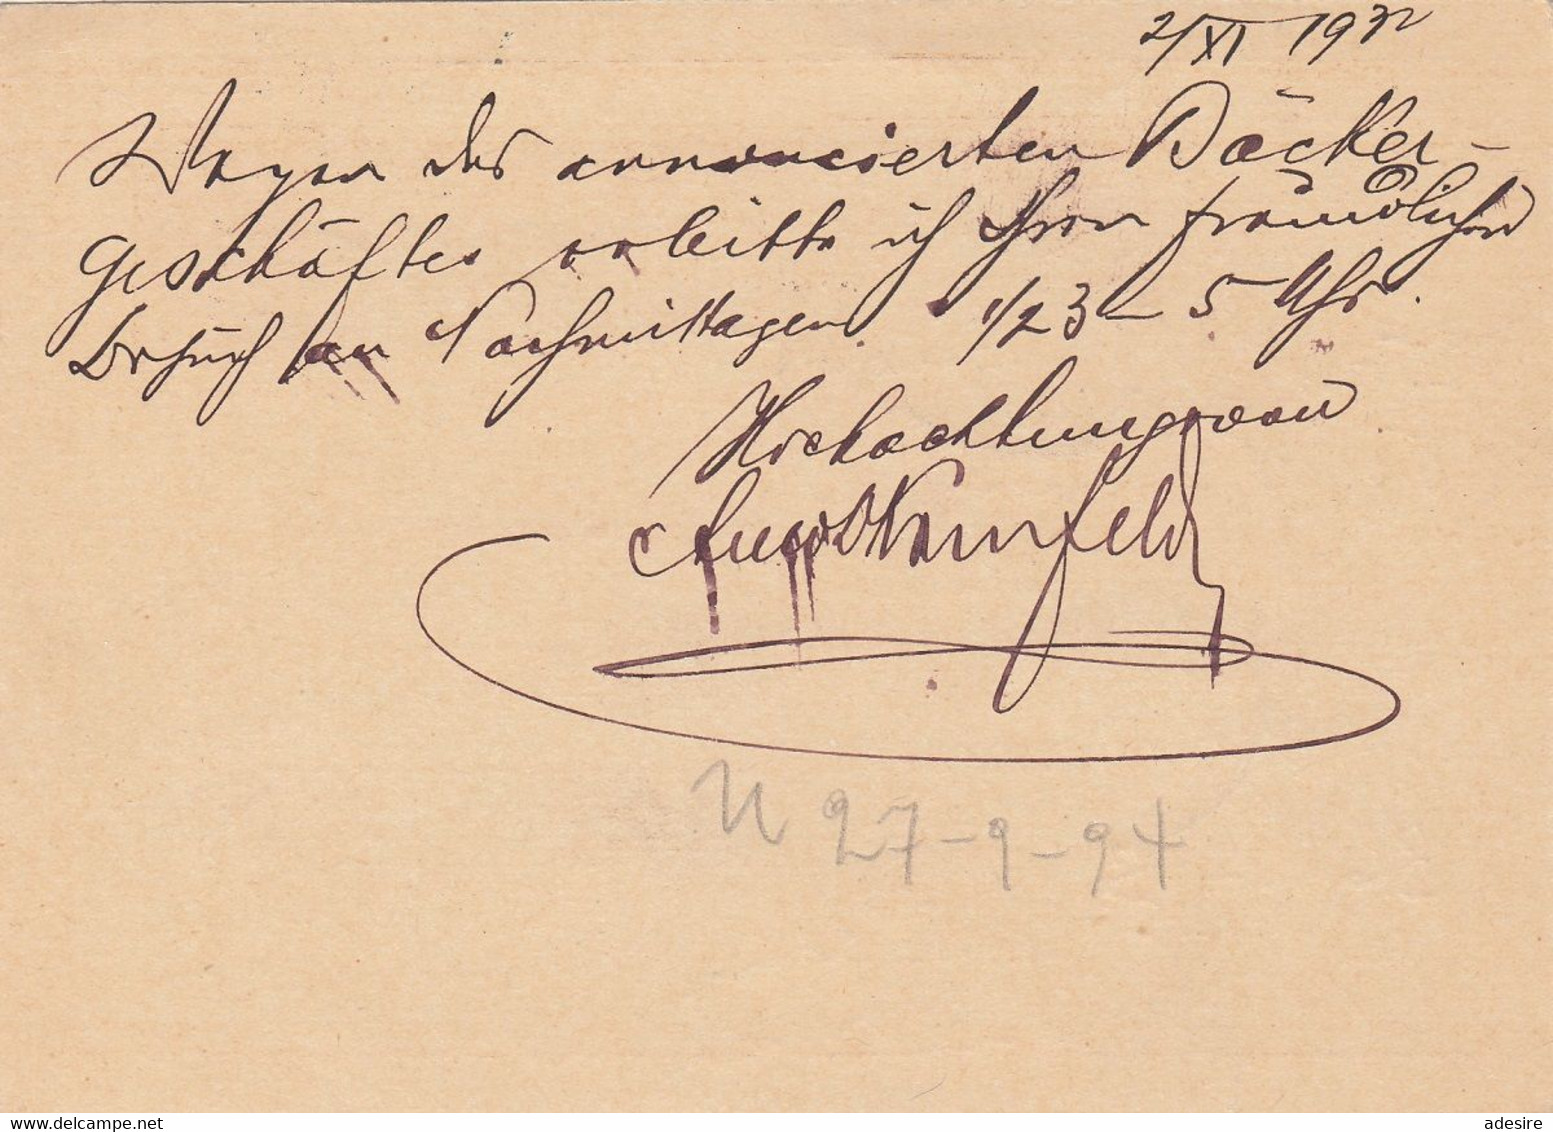 2/XI 1932
Wegen des annoncierten Bäcker-
geschäftes erbitte ich Ihren freundlichen
Besuch an Nachmittagen 1/2 3 – 5 Uhr.
Hochachtungsvoll
Kornfeld
27-9-94
www.delcampe.net
adesire